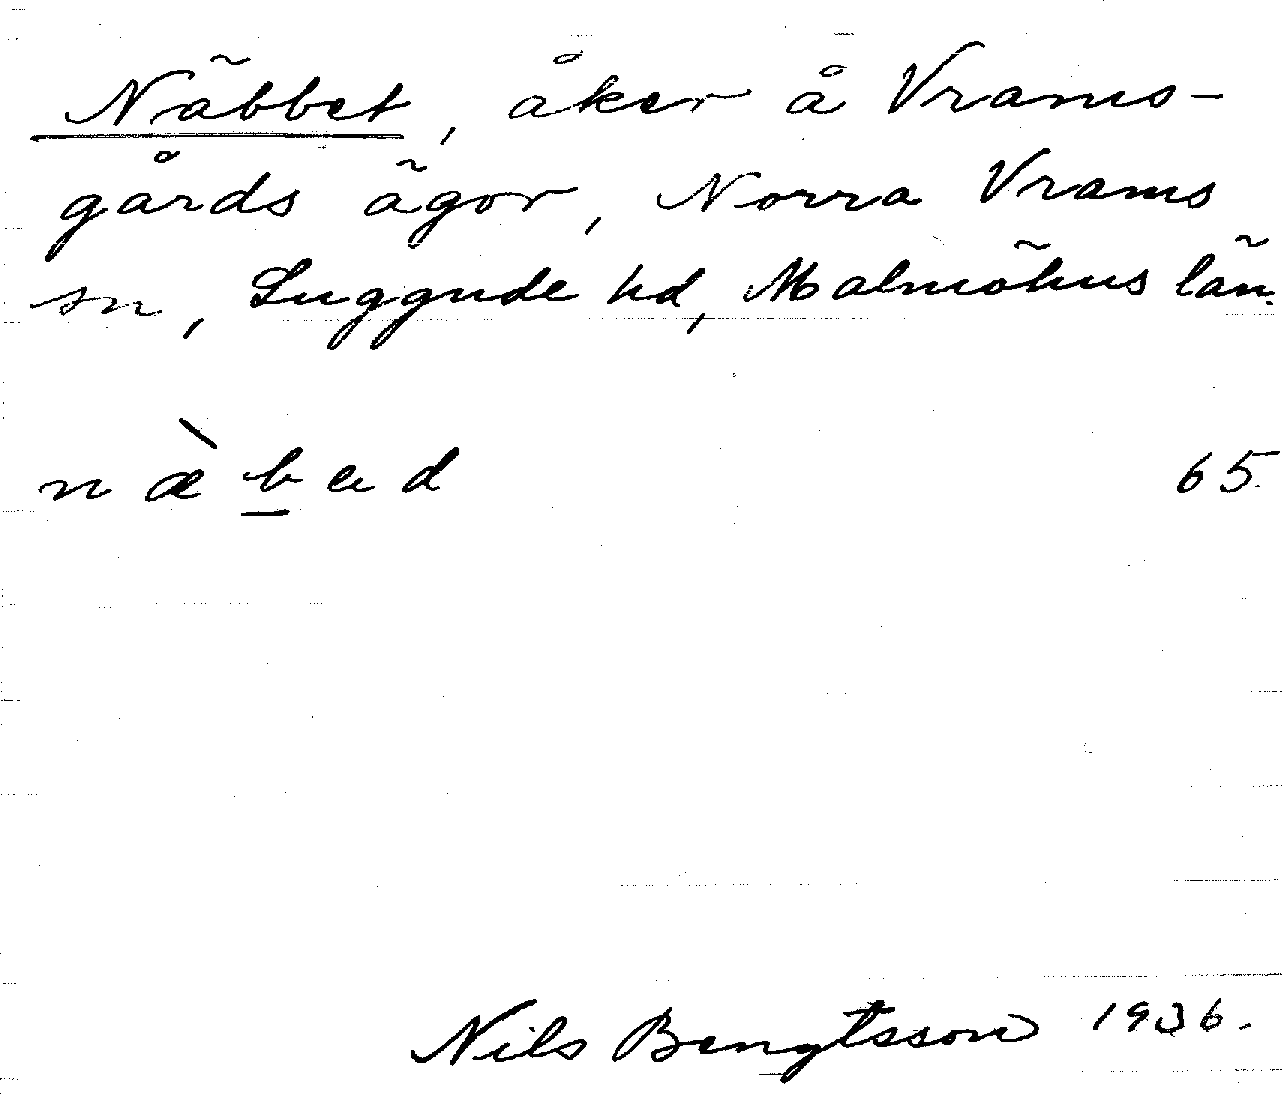 Näbbet, åker å Vrams-
gårds ägor, Norra Vrams
sn, Luggude hd, Malmöhus län.
næ̀bad 65.
Nils Bengtsson 1936.